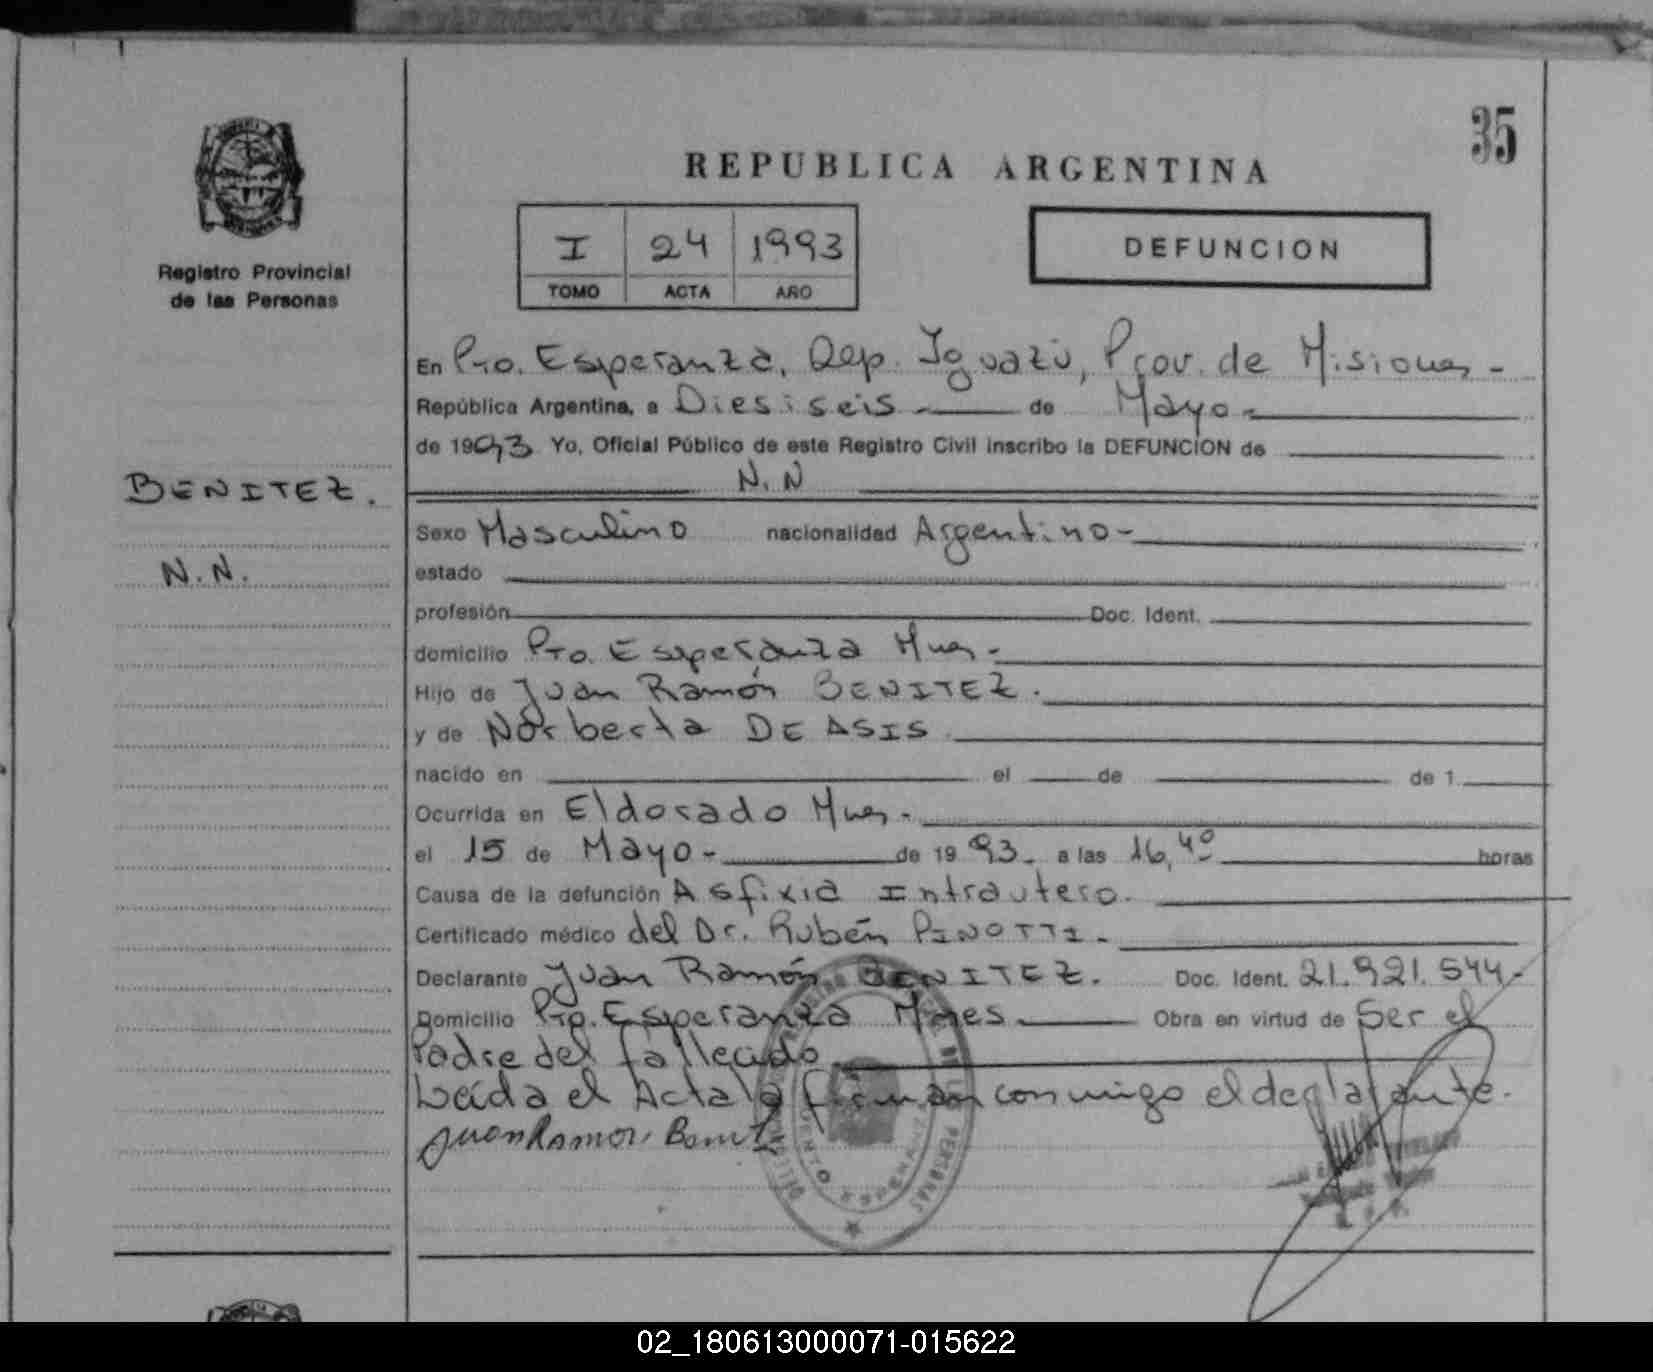 35
REPUBLICA ARGENTINA
I 24 1993
TOMO ACTA AÑO
DEFUNCION
Registro Provincial
de las Personas
BENITEZ.
N.N.
En Pto. Esperanza, Dep. Iguazú, Prov. de Misiones -
República Argentina, a Diesiseis - de Mayo -
de 1993 Yo, Oficial Público de este Registro Civil inscribo la DEFUNCION de
N.N
Sexo Masculino nacionalidad Argentino -
estado
profesión Doc. Ident.
domicilio Pto. Esperanza Mnes -
Hijo de Juan Ramón BENITEZ.
y de Norberta DE ASIS
nacido en el de de 1
Ocurrida en Eldorado Mnes -
el 15 de Mayo - de 1993 - a las 16,40 horas
Causa de la defunción Asfixia Intrautero.
Certificado médico del Dr. Rubén PINOTTI -
Declarante Juan Ramón BENITEZ. Doc. Ident. 21.921.544 -
Domicilio Pto. Esperanza Mnes Obra en virtud de Ser el
Padre del fallecido
Leída el Acta la firman conmigo el declarante.
Juan Ramon Benitez
02_180613000071-015622